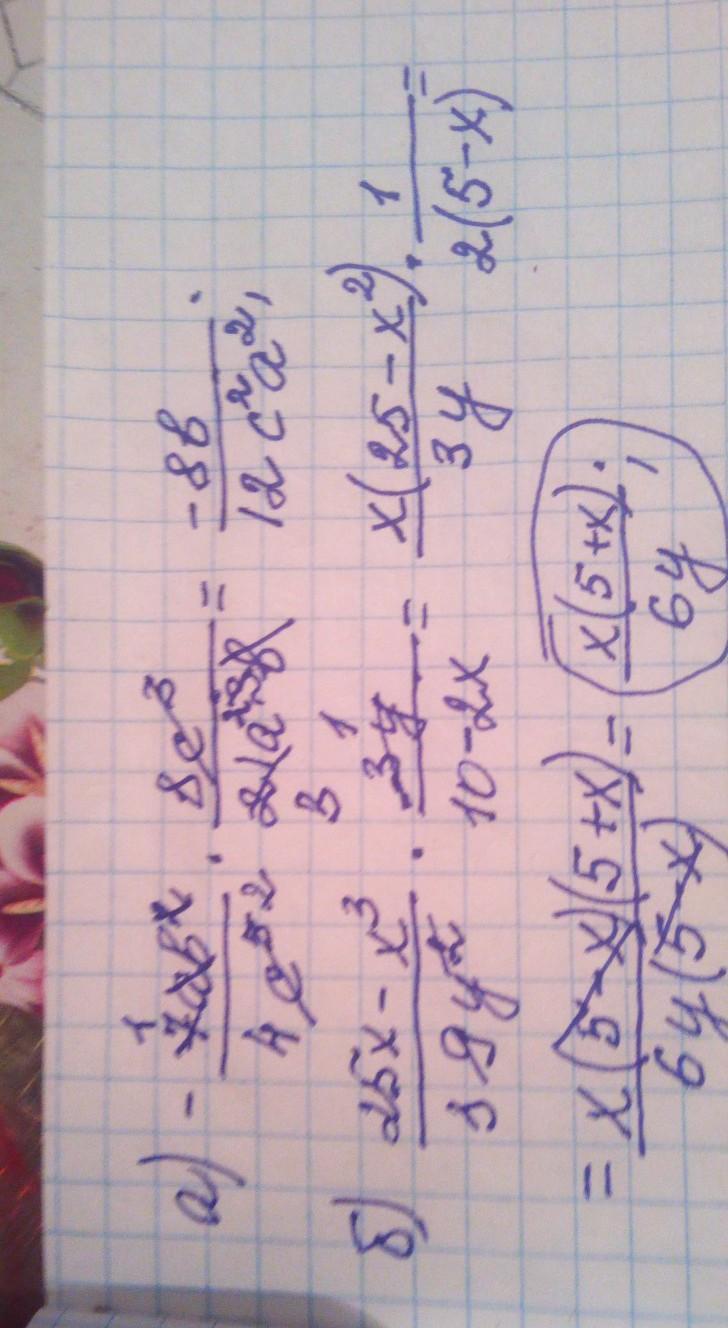 а) - 7ab² / 4c⁵ · 8c³ / 21a³b = -8b / 12c²a²;
б) 25x - x³ / 9y² · 3y / 10-2x = x(25-x²) / 3y · 1 / 2(5-x) =
= x(5-x)(5+x) / 6y(5-x) = x(5+x) / 6y;